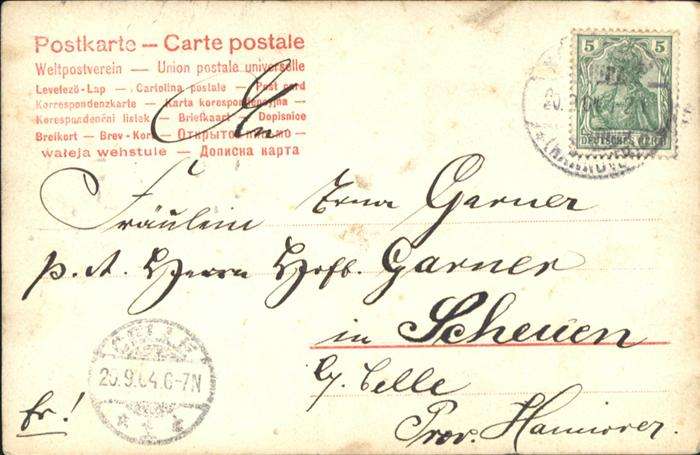 Postkarte — Carte postale
Weltpostverein — Union postale universelle
Levelező-Lap — Cartolina postale — Post card
Korrespondenzkarte — Karta korespondencyjna —
Korespondenční lístek — Briefkaart — Dopisnice
Brevkort — Brev-Kort — Открытое письмо —
wałeja wehstule — Дописна карта
5 5
DEUTSCHES REICH
An
Fräulein Erna Garner
p. A. Herrn Hofb. Garner
in Scheuen
b/ Celle
Prov. Hannover.
fr!
CELLE
25.9.04.6-7N